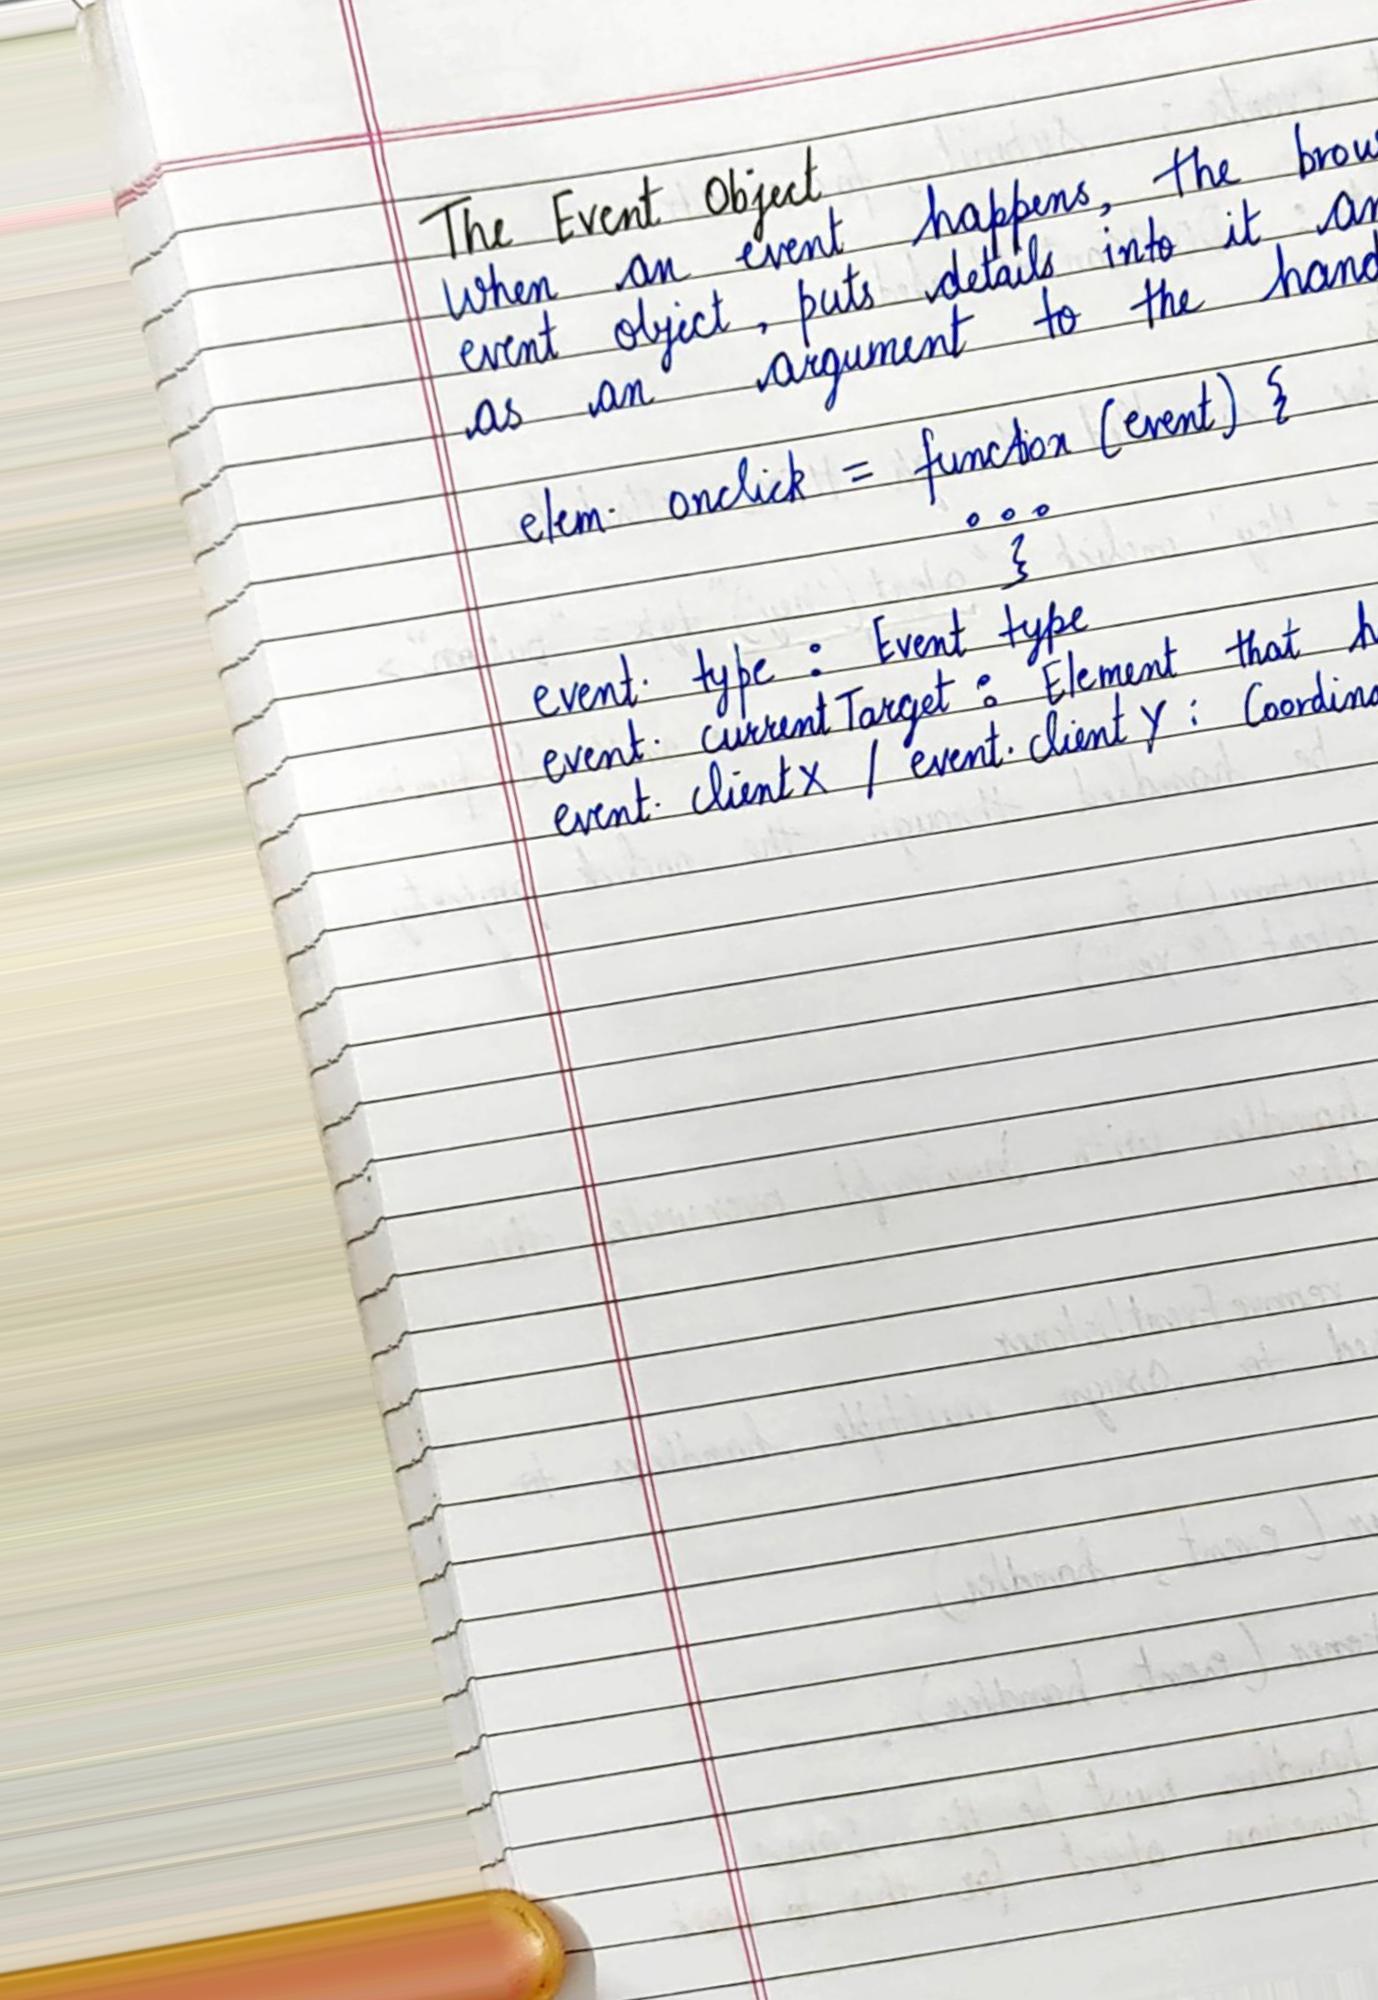 The Event Object
When an event happens, the brow
event object, puts details into it an
as an argument to the hand
elem. onclick = function (event) {
...
}
event. type : Event type
event. currentTarget : Element that h
event. clientX / event. clientY : Coordina